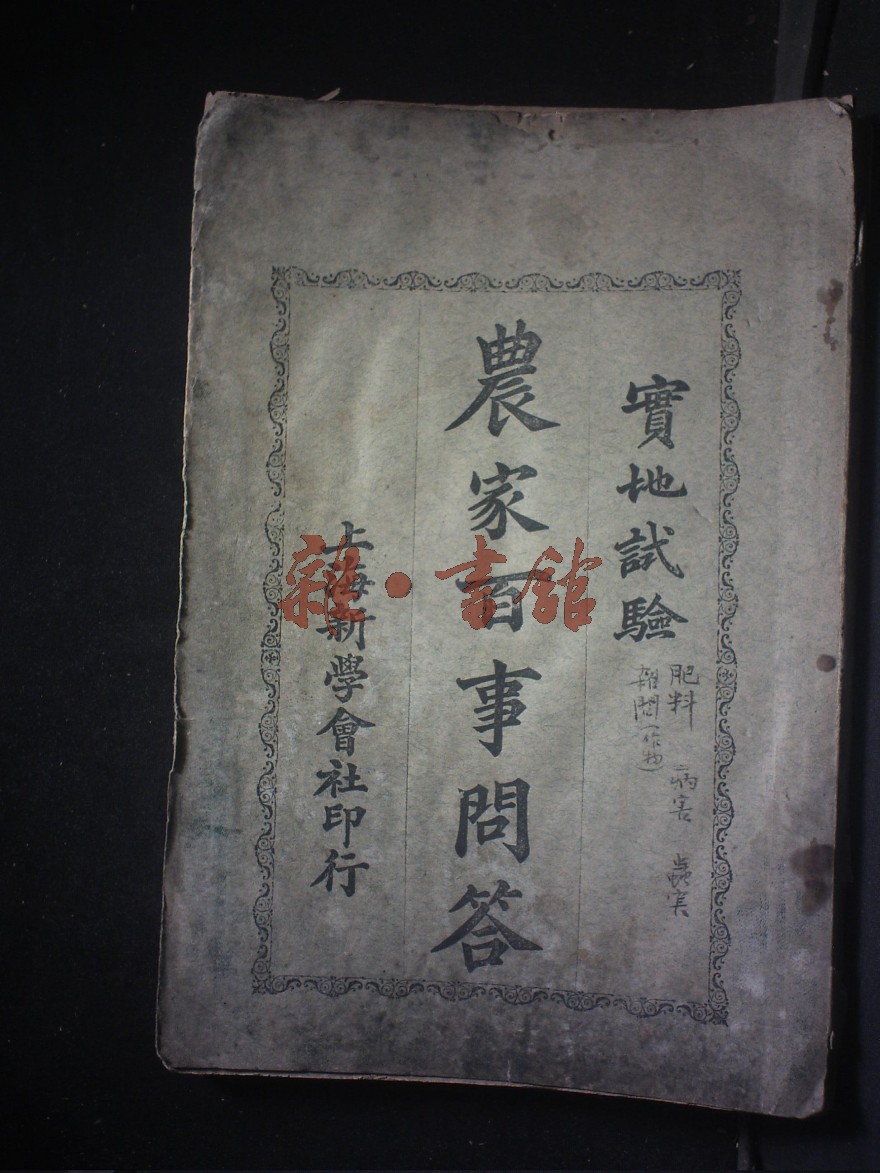 實地試驗
肥料 病害 蟲害
雜問(作物)
農家百事問答
上海新學會社印行
雜·書館